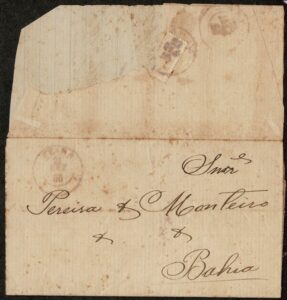 Snres
Pereira & Monteiro
& &
Bahia